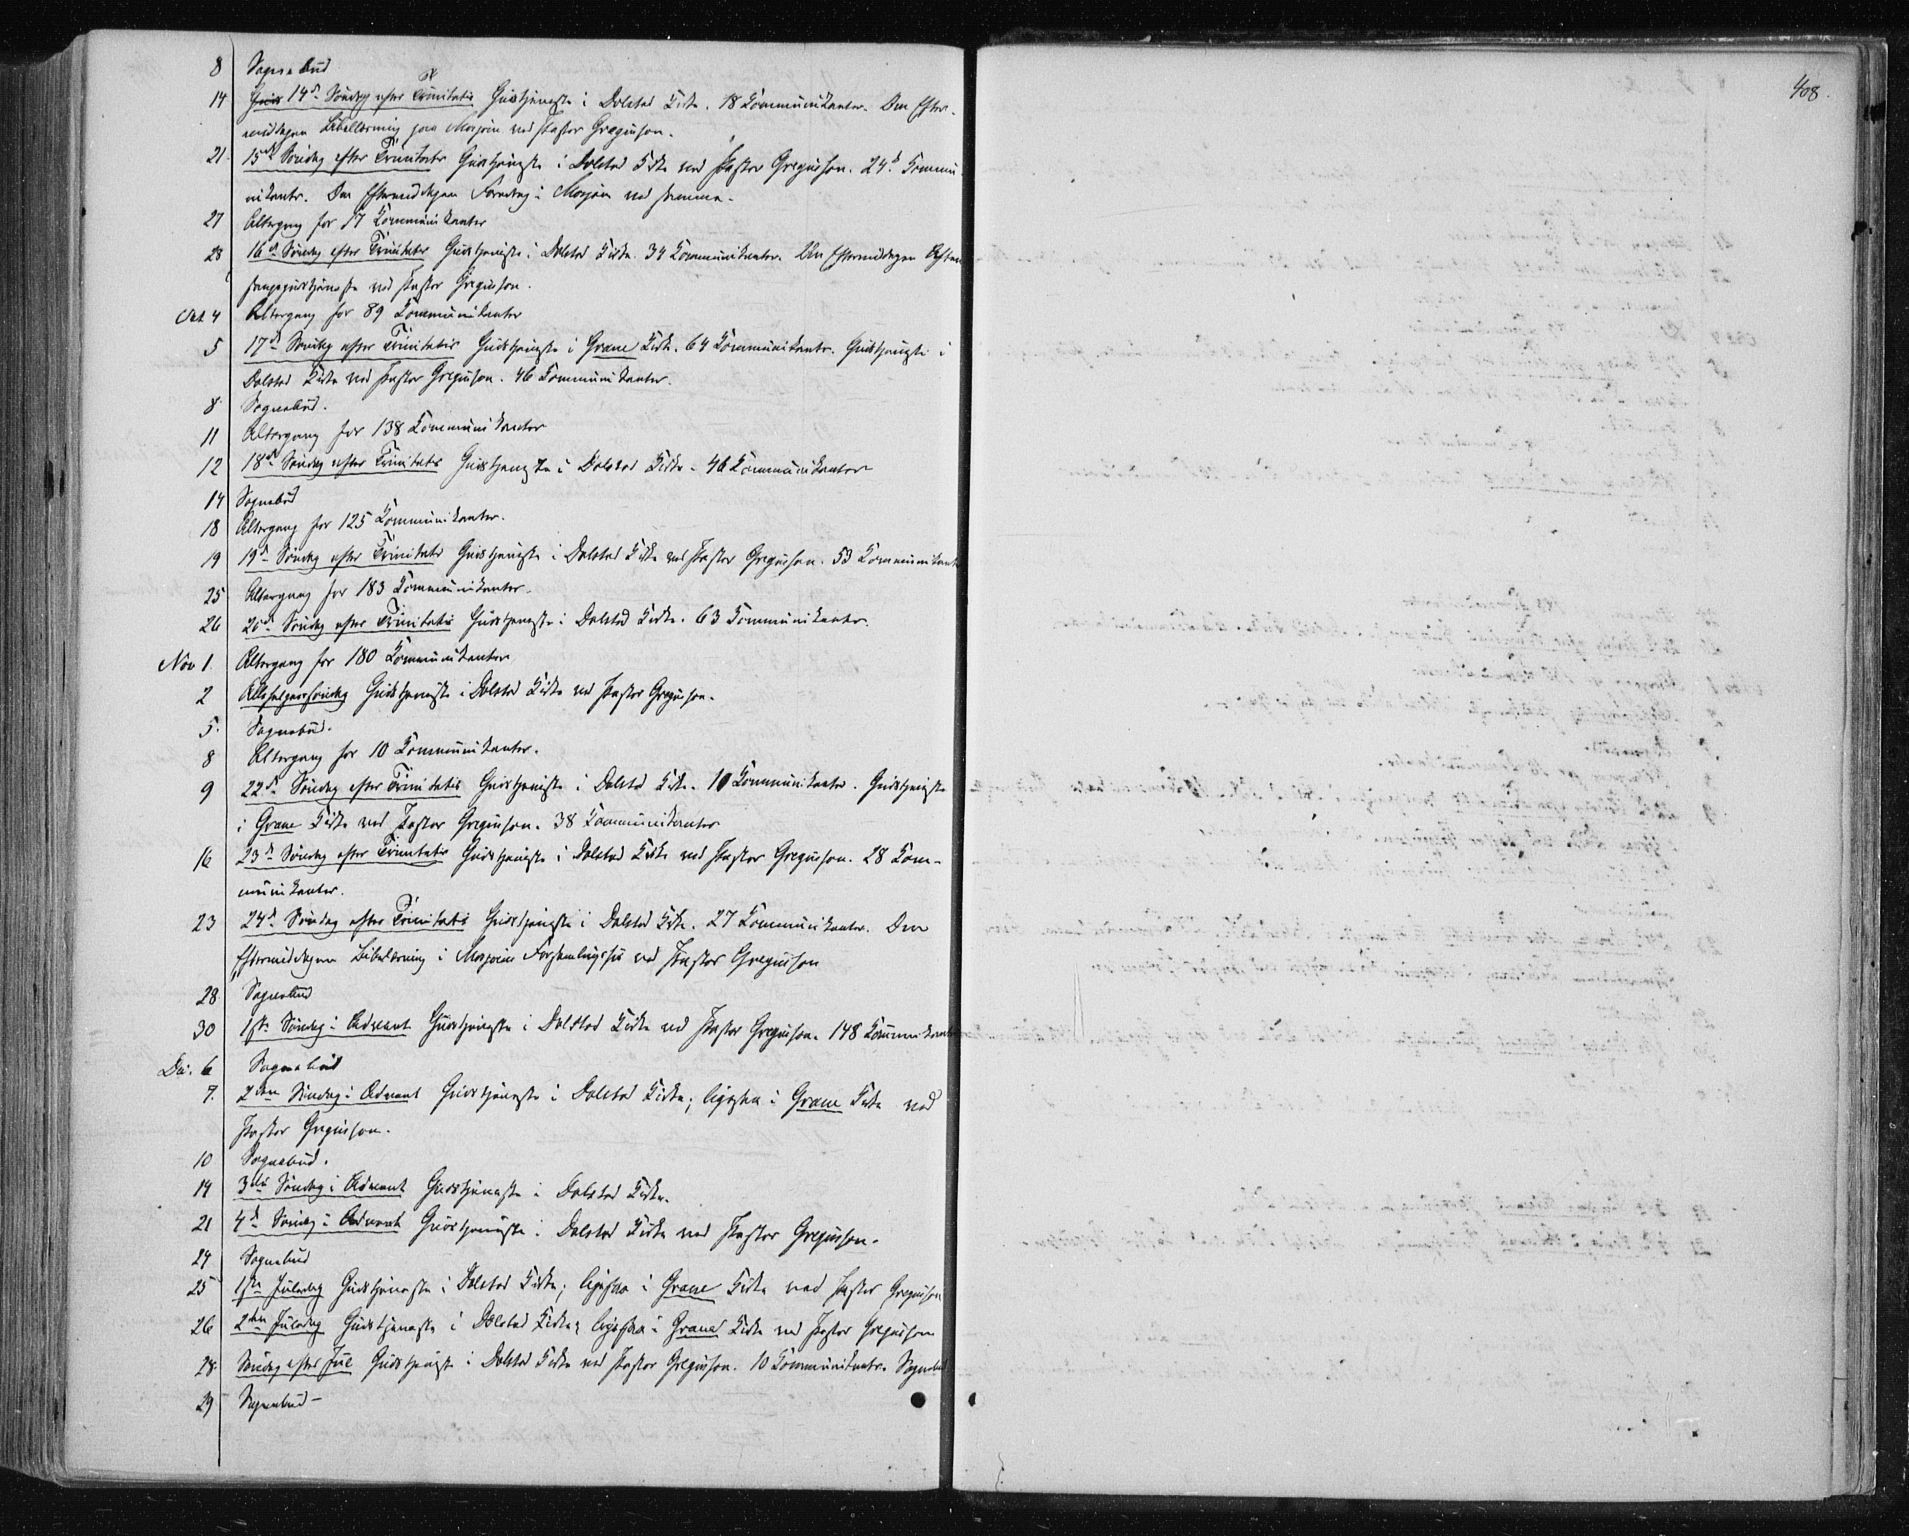 408.
8 Sognebud
14 14de Søndag efter Trinitatis Gudstjeneste i Dolstad Kirke. 18 Kommunikanter. Om Efter-
middagen Bibellæsning paa Mosjøen ved Pastor Greguson.
21. 15de Søndag efter Trinitatis Gudstjeneste i Dolstad Kirke ved Pastor Greguson. 24 Kommu
nikanter. Om Eftermiddagen Foredrag i Mosjøen ved samme.
27 Altergang for 17 Kommunikanter
28 16de Søndag efter Trinitatis Gudstjeneste i Dolstad Kirke. 34 Kommunikanter. Om Eftermiddagen Aften
sangsgudstjeneste ved Pastor Greguson.
Oct 4 Altergang for 89 Kommunikanter
5 17de Søndag efter Trinitatis Gudstjeneste i Grane Kirke. 64 Kommunikanter. Gudstjeneste i
Dolstad Kirke ved Pastor Greguson. 46 Kommunikanter.
8 Sognebud.
11 Altergang for 138 Kommunikanter
12 18de Søndag efter Trinitatis Gudstjeneste i Dolstad Kirke - 46 Kommunikanter
14 Sognebud
18 Altergang for 125 Kommunikanter.
19 19de Søndag efter Trinitatis Gudstjeneste i Dolstad Kirke ved Pastor Greguson. 53 Kommunikant
25 Altergang for 183 Kommunikanter.
26 20de Søndag efter Trinitatis Gudstjeneste i Dolstad Kirke. 63 Kommunikanter.
Nov 1. Altergang for 180 Kommunikanter
2 Allehelgenssøndag Gudstjeneste i Dolstad Kirke ved Pastor Greguson.
5. Sognebud.
8 Altergang for 10 Kommunikanter.
9 22de Søndag efter Trinitatis Gudstjeneste i Dolstad Kirke. 10 Kommunikanter. Gudstjeneste
i Grane Kirke ved Pastor Greguson. 38 Kommunikanter
16 23de Søndag efter Trinitatis Gudstjeneste i Dolstad Kirke ved Pastor Greguson. 28 Kom-
munikanter.
23 24de Søndag efter Trinitatis Gudstjeneste i Dolstad Kirke. 27 Kommunikanter. Om
Eftermiddagen Bibellæsning i Mosjøens Forsamlingshus ved Pastor Greguson
28 Sognebud
30 1ste Søndag i Advent Gudstjeneste i Dolstad Kirke ved Pastor Greguson. 148 Kommunikant
Dec. 6 Sognebud
7. 2den Søndag i Advent Gudstjeneste i Dolstad Kirke; ligesaa i Grane Kirke ved
Pastor Greguson.
10 Sognebud.
14 3die Søndag i Advent Gudstjeneste i Dolstad Kirke.
21 4de Søndag i Advent Gudstjeneste i Dolstad Kirke ved Pastor Greguson.
24 Sognebud
25 1ste Juledag Gudstjeneste i Dolstad Kirke; ligesaa i Grane Kirke ved Pastor Greguson
26 2den Juledag Gudstjeneste i Dolstad Kirke; ligesaa i Grane Kirke ved Pastor Greguson
28. Søndag efter Jul Gudstjeneste i Dolstad Kirke ved Pastor Greguson. 10 Kommunikanter. Sognebud
29 Sognebud -